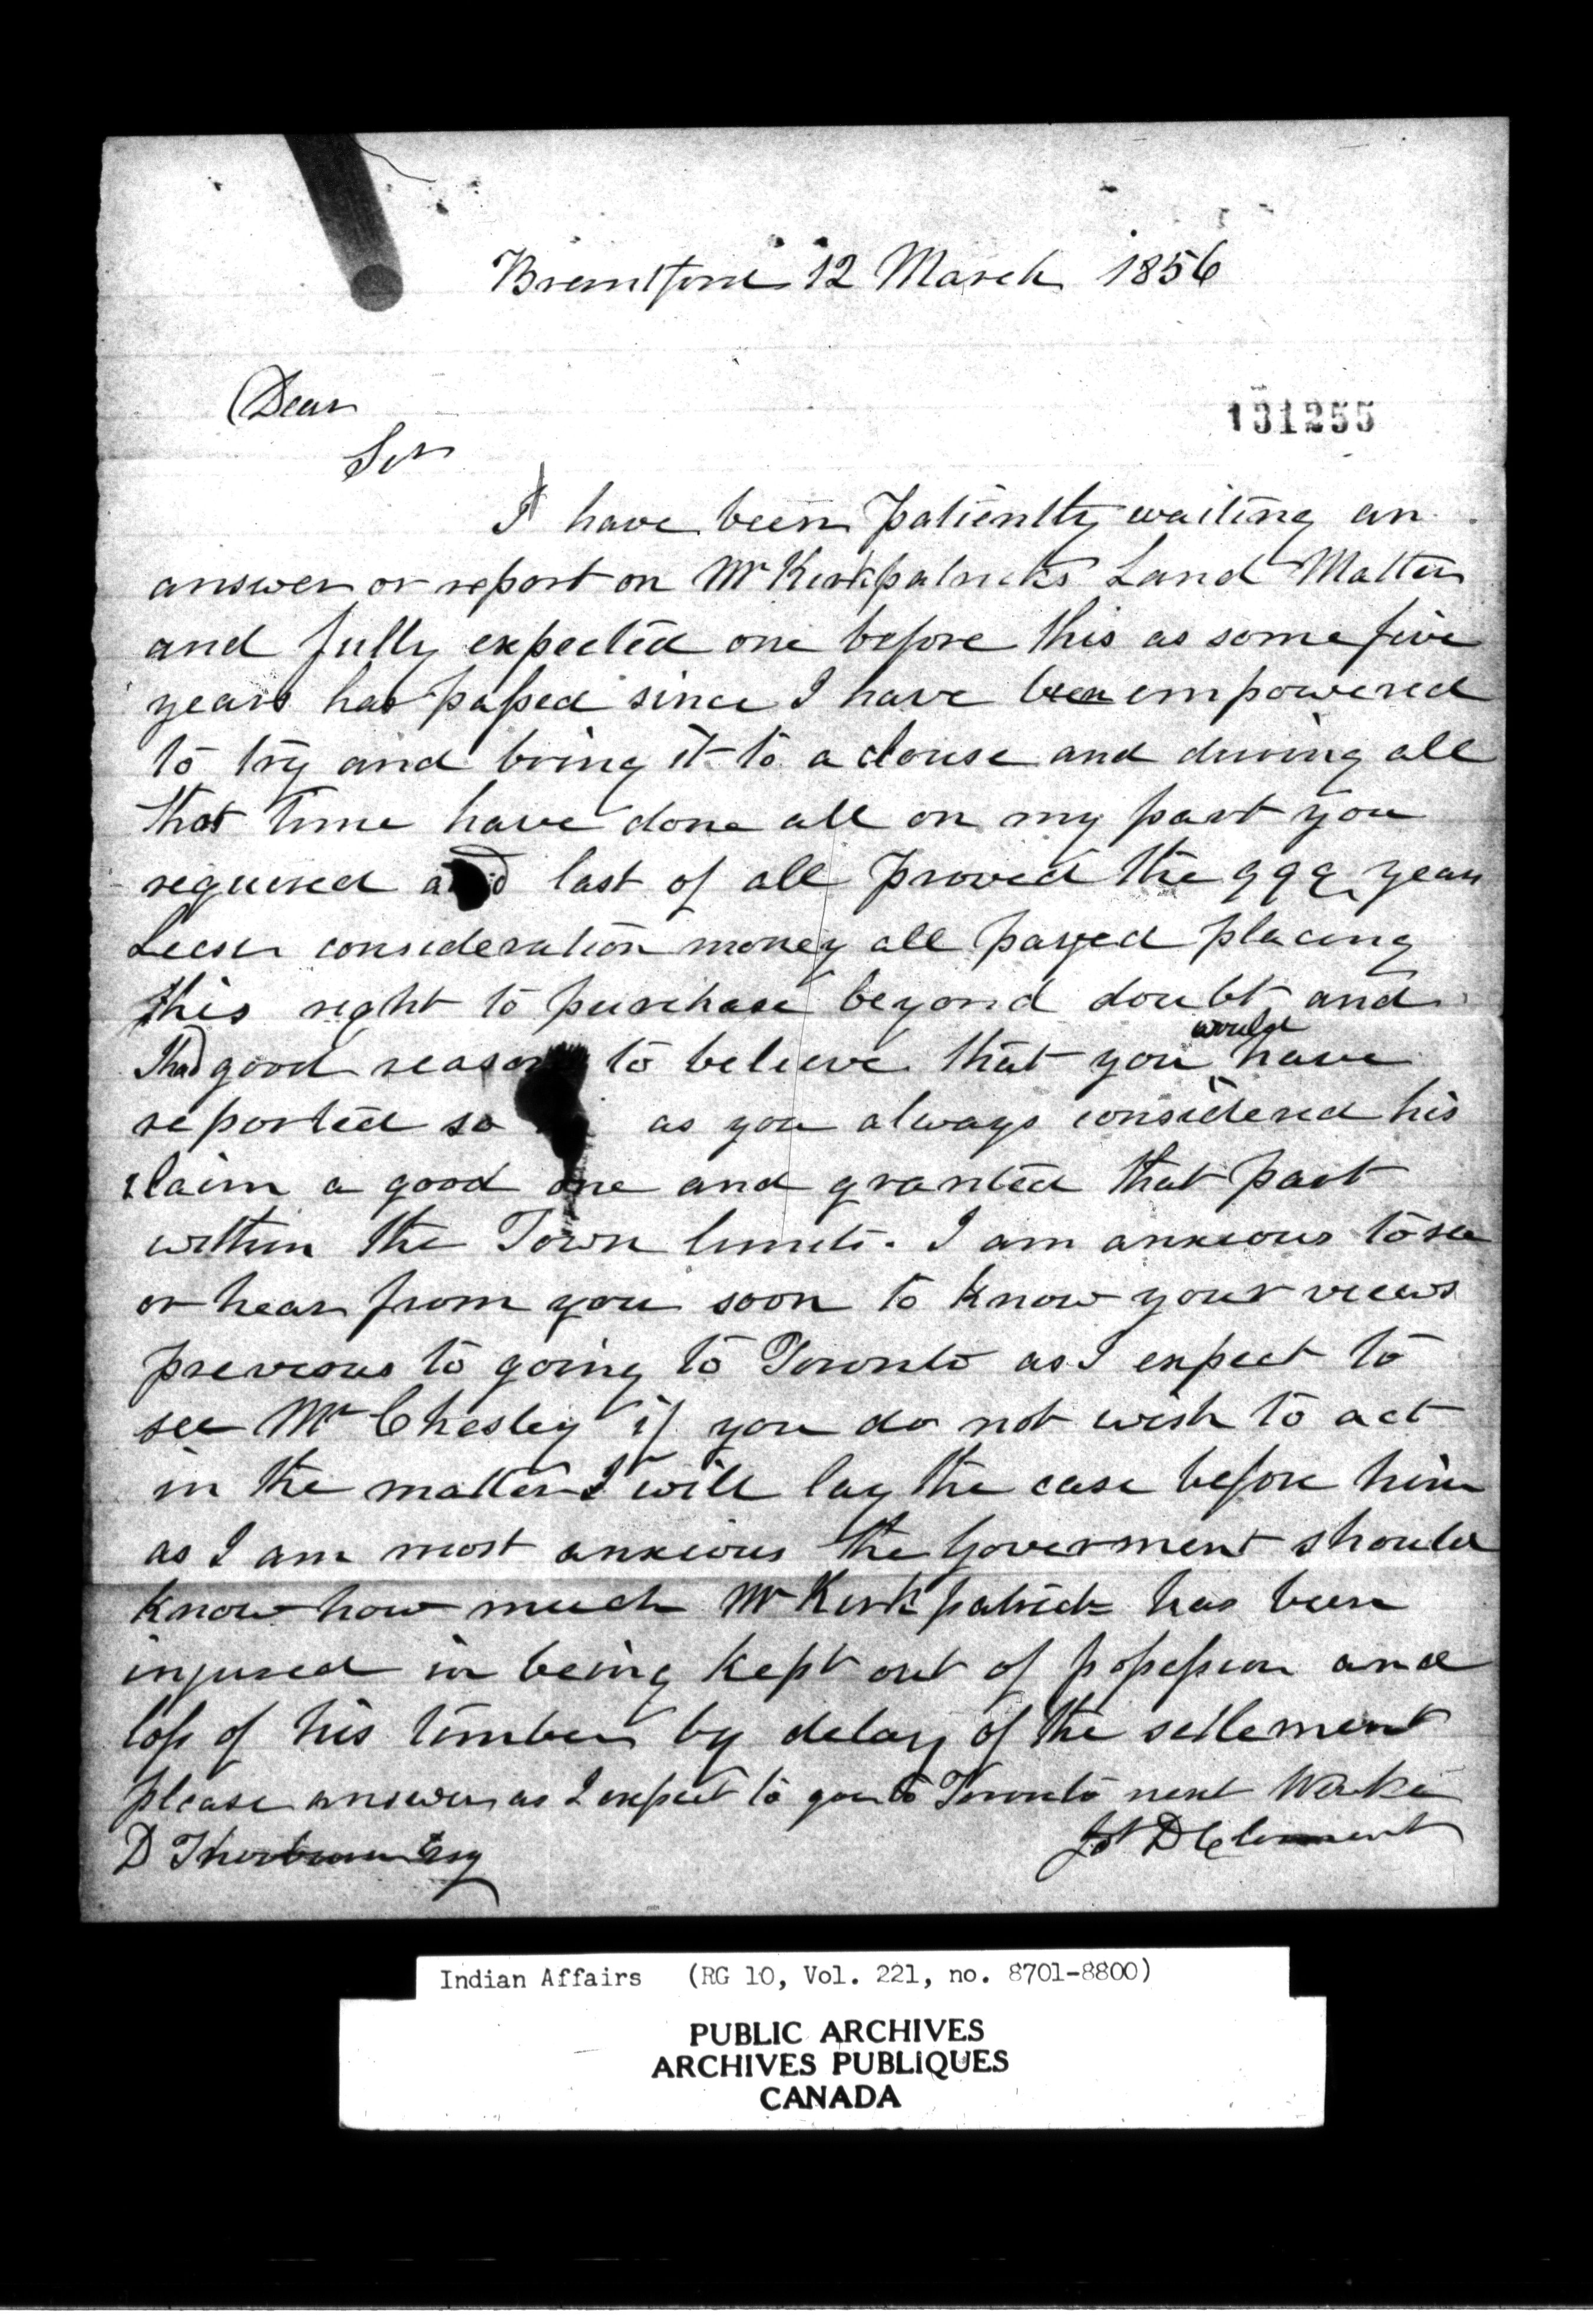 Brantford 12 March 1856
131255
Dear
Sir
I have been patiently waiting an
answer or report on Mr Kirkpatricks Land Matter
and fully expected one before this as some five
years has passed since I have been empowered
to try and bring it to a clouse and during all
that time have done all on my part you
required and last of all proved the 999 year
Leese consideration money all payed placing
this right to purchase beyond doubt and
I had good reason to beleeve that you would have
reported so as you always considered his
claim a good one and granted that part
within the Town limits. I am anxious to see
or hear from you soon to know your views
previous to going to Toronto as I expect to
see Mr Chesley if you do not wish to act
in the matter I will lay the case before him
as I am most anxious the Goverment should
know how much Mr Kirkpatrick has been
injured in being kept out of possession and
loss of his timber by delay of the setlement
please answer as I expect to go to Toronto next
D Thorburn Esq
Jos D Clement
Indian Affairs (RG 10, Vol. 221, no. 8701-8800)
PUBLIC ARCHIVES
ARCHIVES PUBLIQUES
CANADA